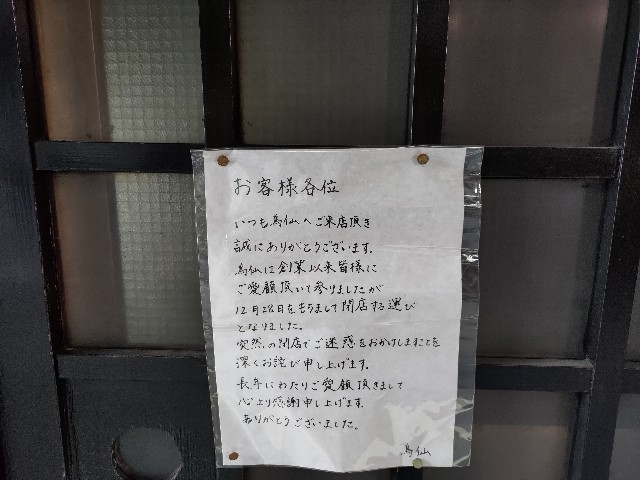 お客様各位
いつも鳥仙へご来店頂き
誠にありがとうございます。
鳥仙は創業以来皆様に
ご愛顧頂いて参りましたが
12月28日をもちまして閉店する運び
となりました。
突然の閉店でご迷惑をおかけしますことを
深くお詫び申し上げます。
長年にわたりご愛顧頂きまして
心より感謝申し上げます。
ありがとうございました。
鳥仙